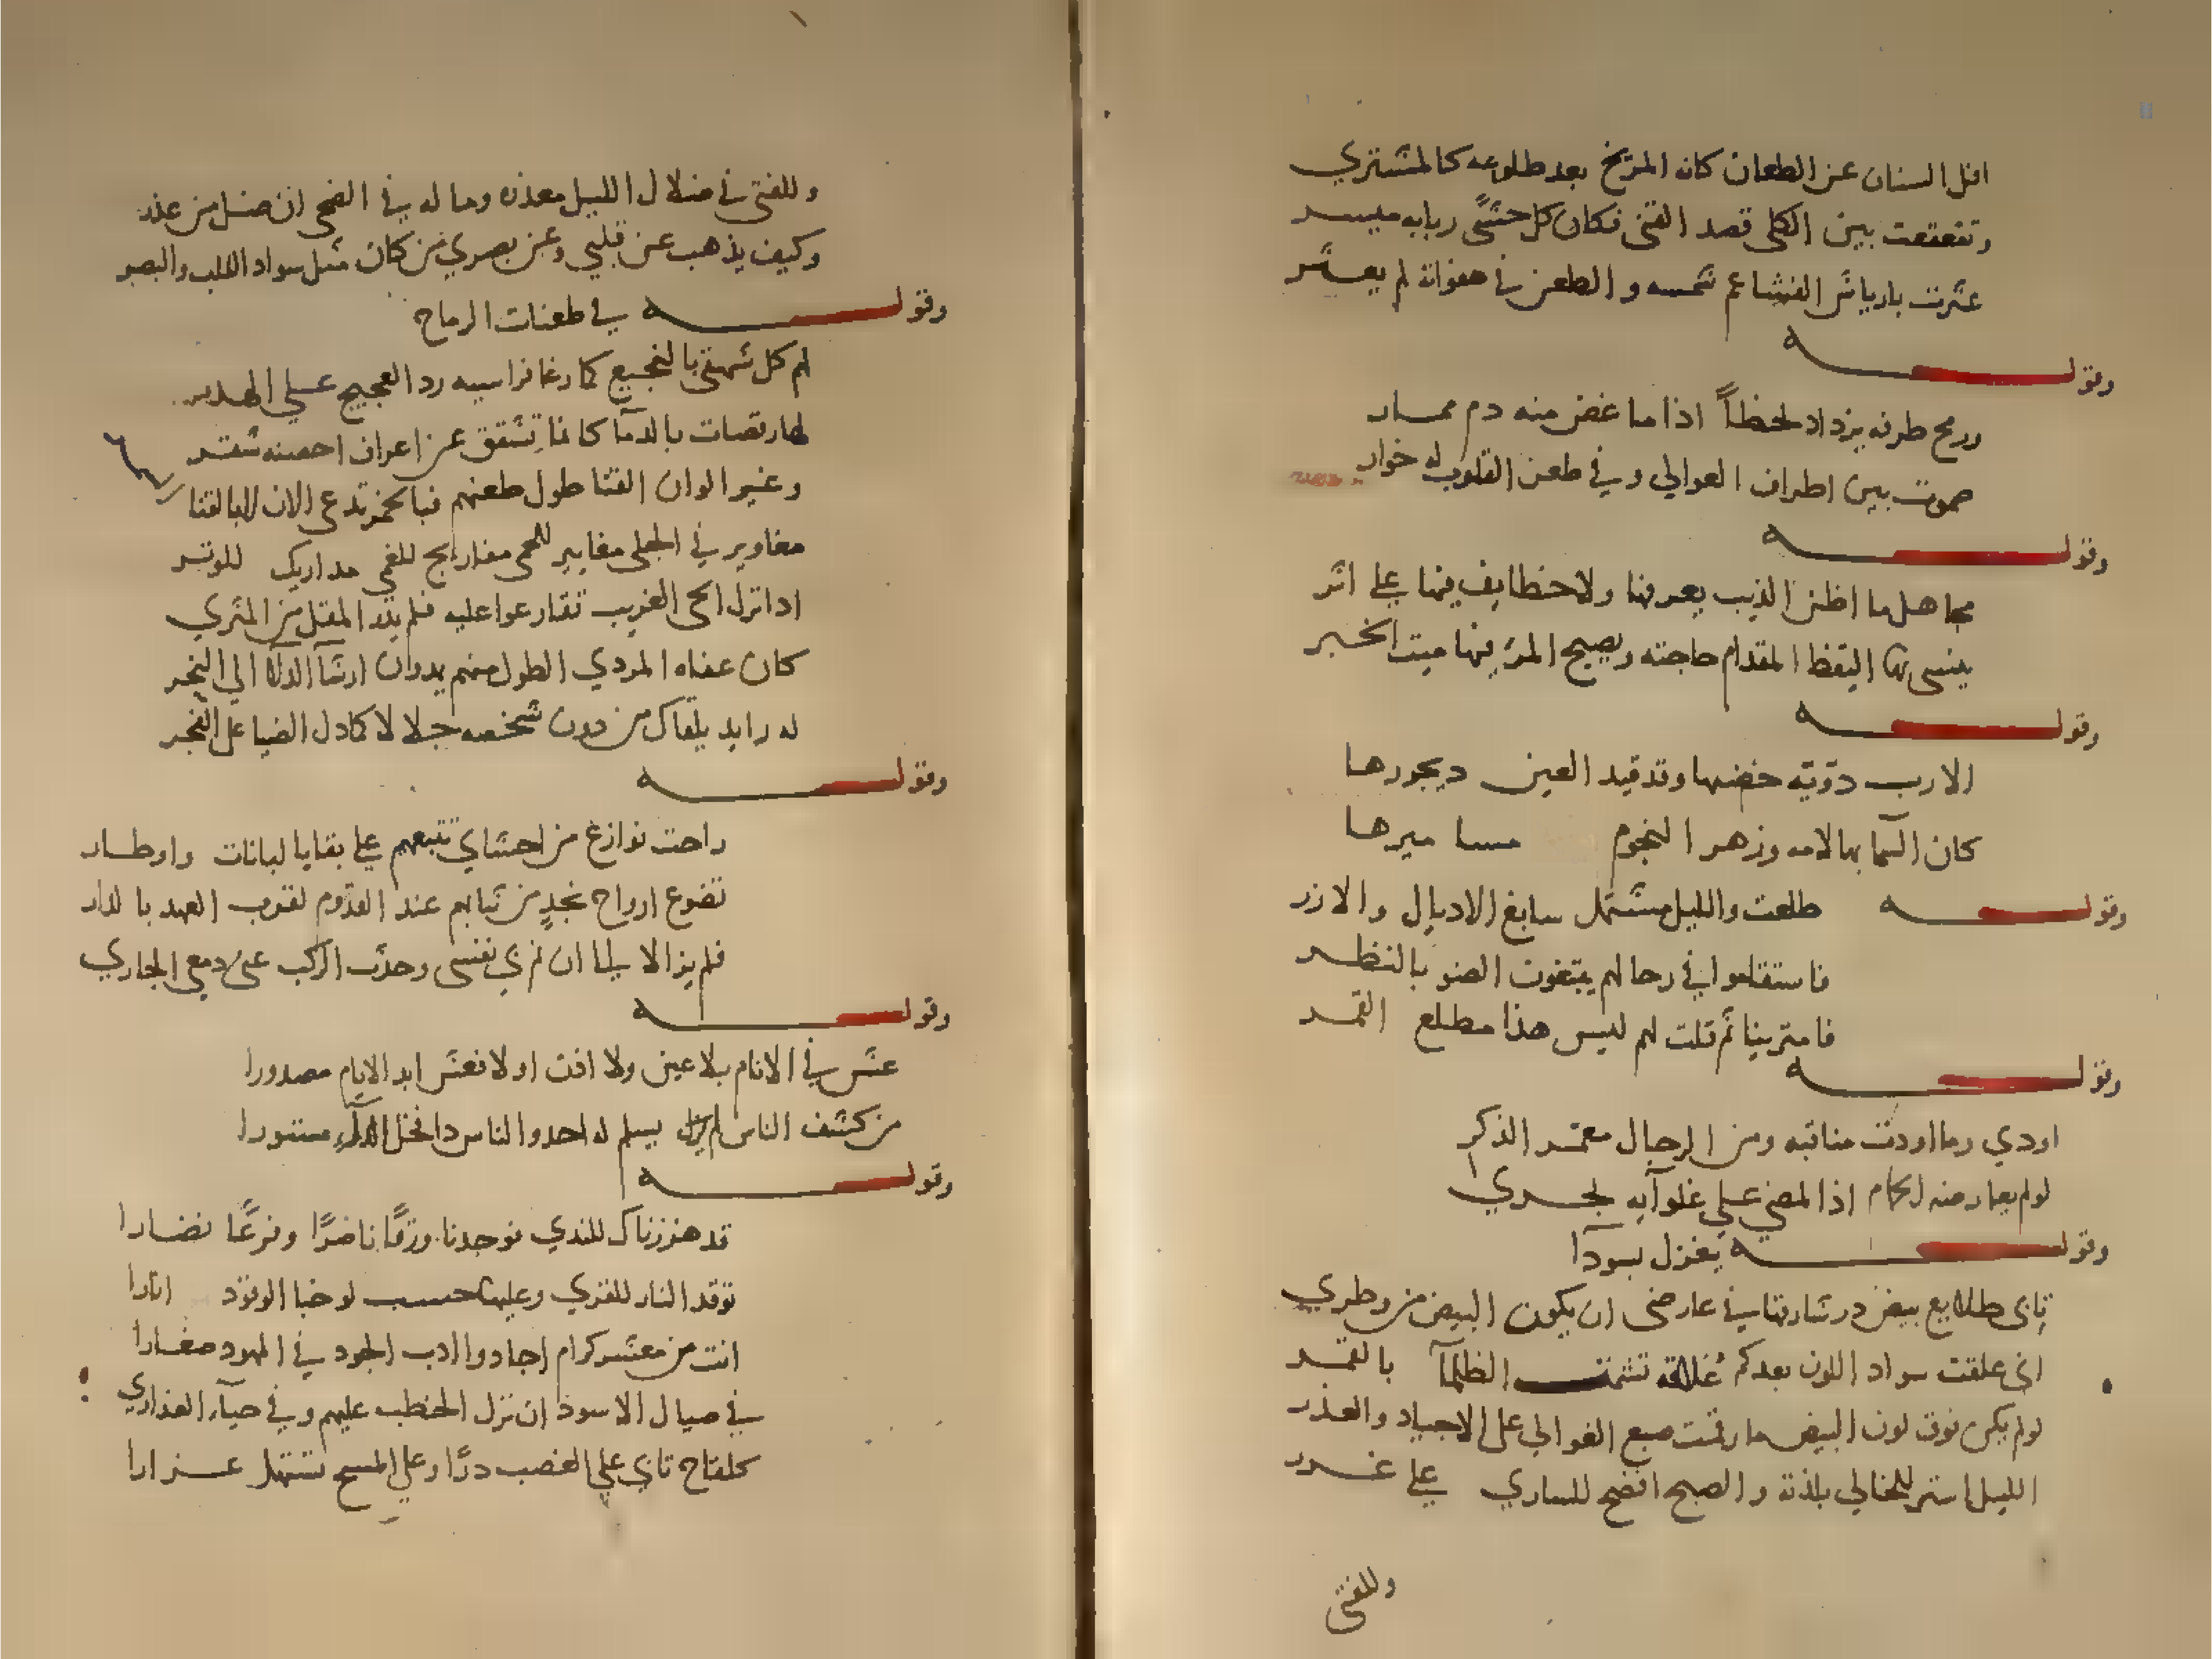 افل السنان عن الطعان كانه المريخ بعد طلوعه كالمشتري
وتقعقعت بين الكلى قصد القنى فكان كل حشًى ربابه ميسر
عثرت بارياش القشاعم شمسه والطعن في هفواته لم يعثر
وقوله
ورمح طرفه يزداد لحظاً اذا ما غض منه دم ممار
صموت بين اطراف العوالي وفي طعن القلوب له خوار
وقوله
مجاهل ما اظن الذيب يعرفها ولا خطا يف فيها على اثر
ينسى بها اليقظ المقدام حاجته ويصبح المرء فيها ميت الخبر
وقوله
الا رب دوّيّه خضها وقد قيد العين ديجورها
كان السما بها لامه وزهر النجوم مساميرها
وقوله طلعت والليل مشتمل سابغ الاديال والازر
فاستقاموا في رحالهم يبتغون الضو بالنظر
فامترينا ثم قلت لهم ليس هذا مطلع القمر
وقوله
اودي وما اودت مناقبه ومن الرجال معمر الذكر
لو لم يعارضه الحمام اذا لمضى على غلوآيه لجري
وقوله يغزل بسودآ
تابى طلايع بيض در شارقها في عارضى ان يكون البيض من وطري
انى علقت سواد اللون بعدكم علاقه تشمت الظلمآ بالقمر
لو لم يكن فوق لون البيض ما رقمت صبع الغوالي على الاجياد والعذر
الليل استر للخالي بلذته والصبح افضح للساري على غرر
وللفتى
وللفتى في ضلال الليل معذره وما له في الضحى ان ضل من عذر
وكيف يذهب عن قلبي وعن بصري من كان مثل سواد القلب والبصر
وقوله في طعنات الرماح
لهم كل شهقى بالنجيع كما رغا قراسيه رد العجيج على الهدير
لها رقصات بالدمآ كانما تشقق عن اعراف احصنه شقر
وغير الوان القنا طول طعنهم فبالحمر تدعى الان لا بالقنا
مغاوير في الجلى مغايير للحمى مفاريج للغمى مداريك للوتر
اذا نزل الحى الغريب تقارعوا عليه فلم يدر المقل من المثري
كان عفاه المردي الطول منهم يدوان ارشآ الدلآ الى البحر
له رايد يلقاك من دون شخصه جلالا كما دل الضيا على الفجر
وقوله
راحت نوازع من احشاي تتبعهم على بقايا لبانات واوطار
تضوع ارواح نجدٍ من ثيابهم عند القدوم لقرب العهد بالدار
فلم يزالا الى ان نم بي نفسى وحدّث الركب عنى دمعى الجاري
وقوله
عش في الانام بلا عين ولا اذن او لا فعش ابد الايام مصدورا
من كشف الناس لم يسلم له احد والناس دا فخل الدآء مستورا
وقوله
قد هززناك للندي فوجدنا ورقًا ناضرًا وفرعًا نضارا
توقد النار للقري وعليها حسب لو خبا الوقود انارا
انت من معشر كرام اجادوا ادب الجود في المهود صغارا
في صيال الاسود ان نزل الخطب عليهم وفي حيآء العذاري
كلقاح تابى على الغصب درًا وعلى المسح تستهل غزارا